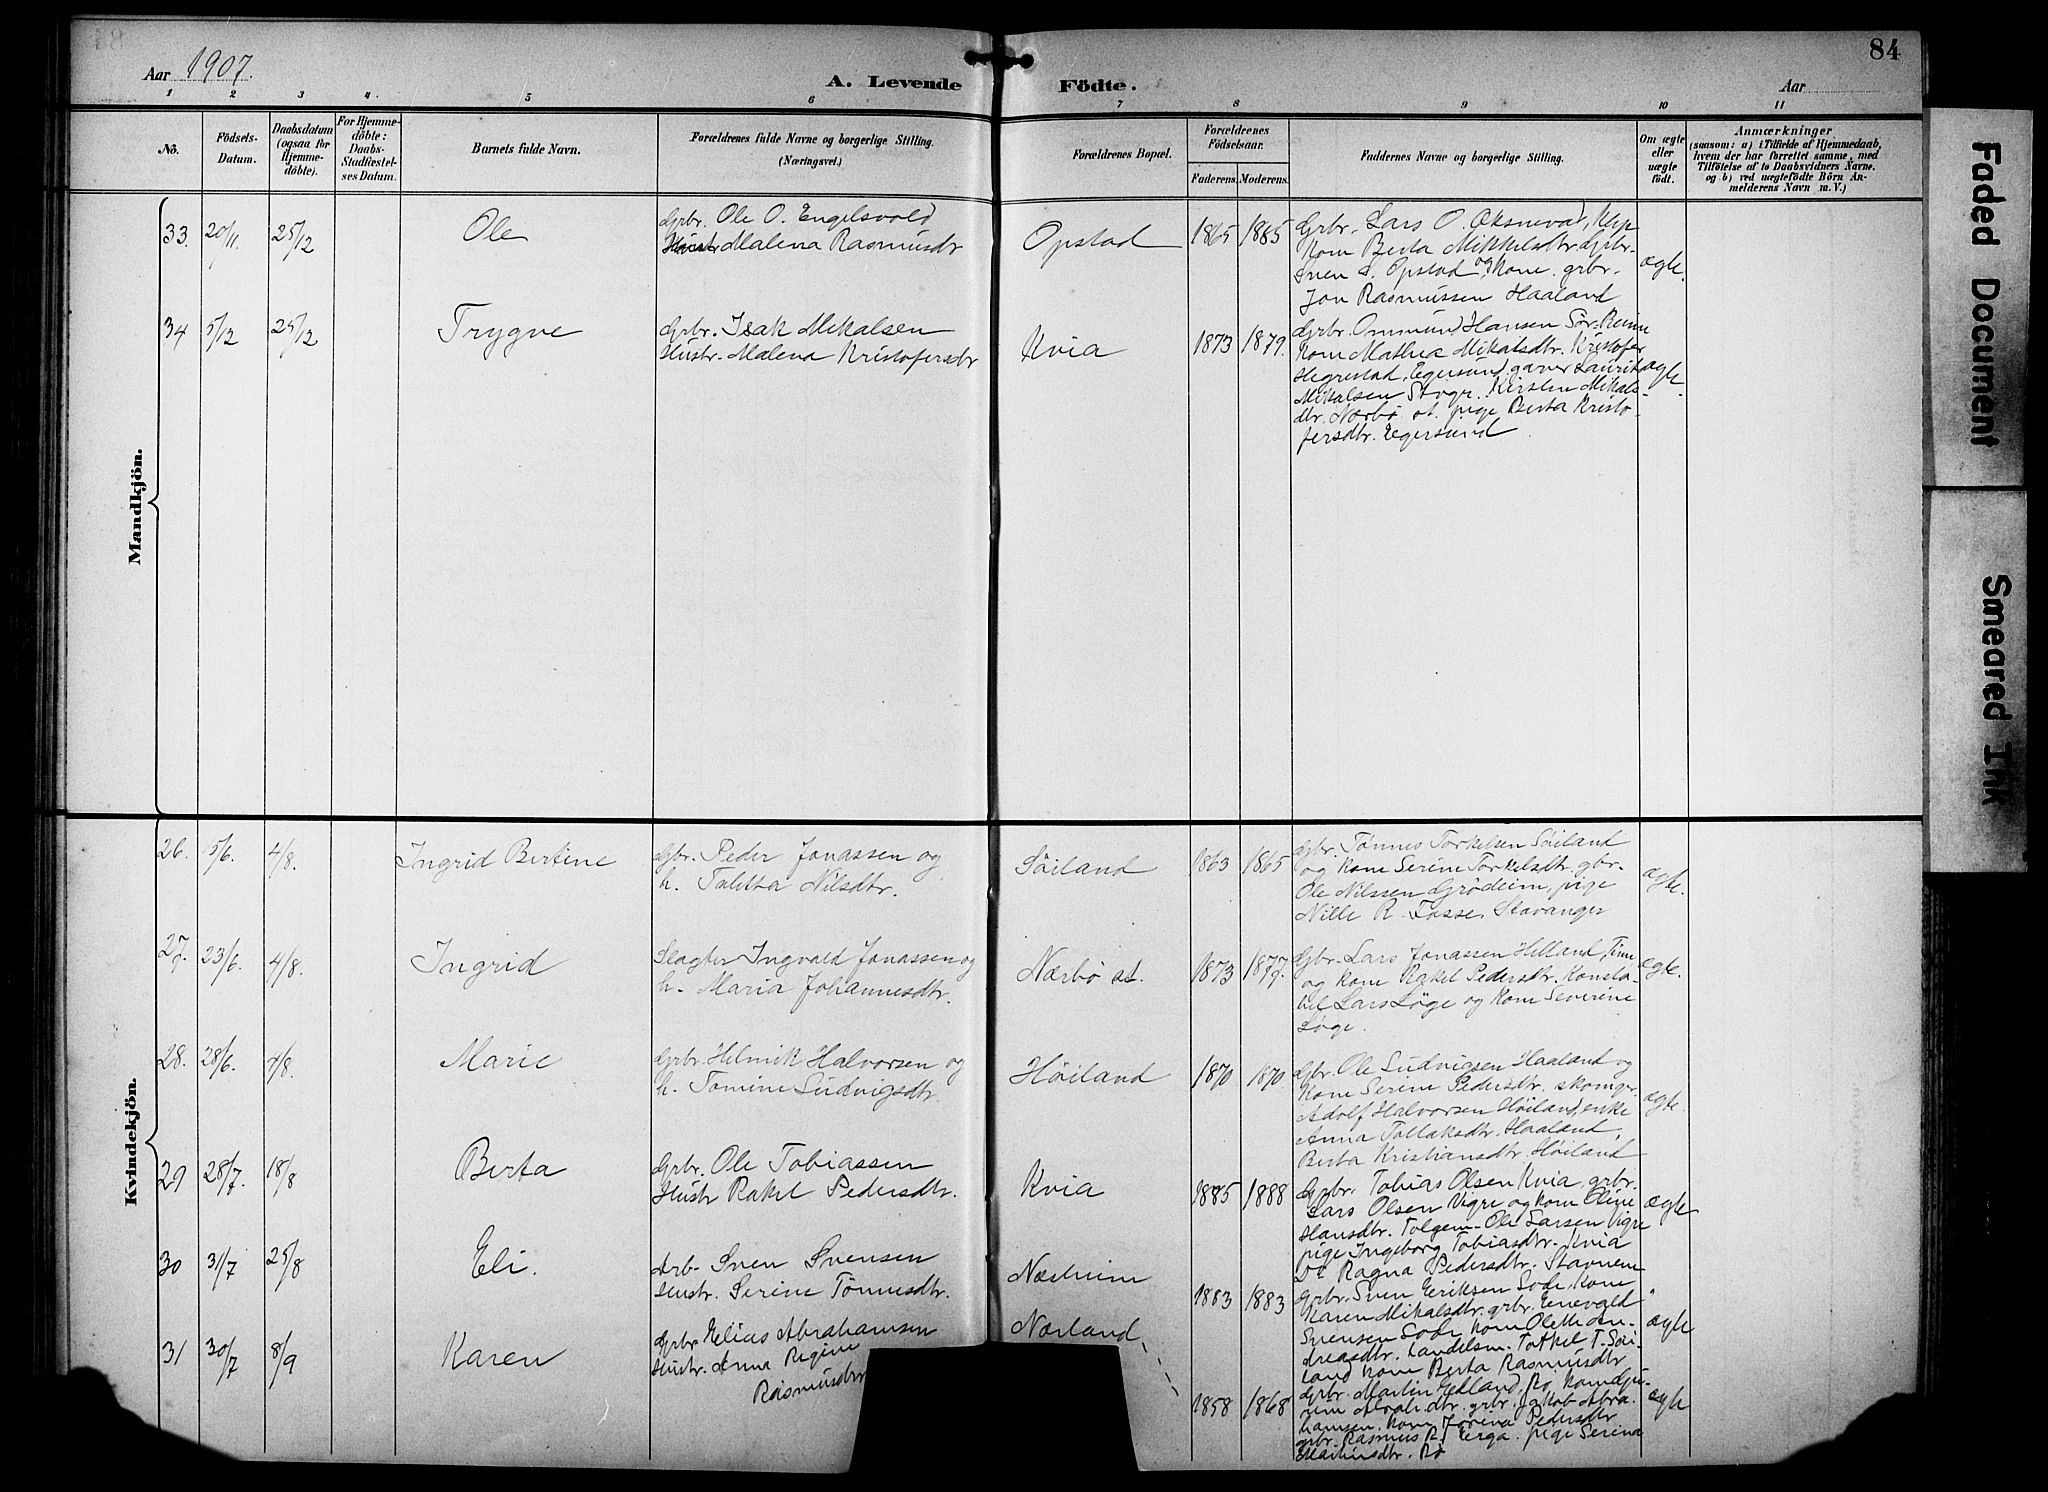 Aar 1907.
A. Levende Födte.
Aar
84
1 2 3 4 5 6 7 8 9 10 11
No.
Födsels-
Datum.
Daabsdatum
(ogsaa for
Hjemme-
döbte).
For Hjemme-
döbte:
Daabs-
Stadfæstel-
ses Datum.
Barnets fulde Navn.
Forældrenes fulde Navne og borgerlige Stilling.
(Næringsvei.)
Forældrenes Bopæl.
Forældrenes
Födselsaar.
Faderens. Moderens.
Faddernes Navne og borgerlige Stilling.
Om ægte
eller
uægte
födt.
Anmærkninger
(saasom: a) i Tilfælde af Hjemmedaab,
hvem der har forrettet samme, med
Tilföielse af to Daabsvidners Navne.
og b) ved uægtefödte Börn An-
melderens Navn m. V.)
Mandkjön.
33. 20/11. 25/12 Ole
Grbr. Ole O. Engelsvold
Hustr Malena Rasmusdtr
Opstad 1865 1885
Grbr. Lars O. Øksnevad, Klep
Kone Berta Mikkelsdtr. Grbr.
Sven S. Opstad og kone. grbr.
Jon Rasmussen Haaland
ægte.
34 5/12 25/12 Trygve
Grbr. Isak Mikalsen
Hustr. Malena Kristofersdtr
Kvia 1873 1879.
Grbr. Ommund Hansen Sør-Reime
Kone Mathea Mikalsdtr. Kristofer
Hegrestad, Egersund, garver Laurits
Mikalsen Stvgr. Kirsten Mikals-
dtr. Nærbø st. pige Berta Kristo-
fersdtr. Egersund
ægte.
Kvindekjön.
26. 5/6. 4/8. Ingrid Bertine
Gbr. Peder Jonassen og
h. Talitta Nilsdtr.
Søiland 1863 1865
Gbr. Tønnes Torkelsen Søiland
og kone Serine Torkelsdtr. gbr.
Ole Nilssen Grødeim, pige
Nille R. Fosse, Stavanger
ægte.
27. 23/6. 4/8. Ingrid
Slagter Ingvald Jonassen og
h. Maria Johannesdtr.
Nærbø st. 1873 1877
Gbr. Lars Jonassen Helland, Time
og kone Rakel Pedersdtr. Konsta-
bel Lars Løge og kone Severine
Løge.
ægte.
28. 28/6. 4/8. Marie
Grbr. Helmik Halvorsen og
h. Tomine Ludvigsdtr.
Høiland 1870 1870
Gbr. Ole Ludvigsen Haaland og
Kone Serine Pedersdtr. skomger
Adolf Halvorsen Høiland, enke
Anna Tollaksdtr. Haaland,
Berta Kristiansdtr. Høiland
ægte.
29 28/7. 18/8 Berta
Grbr. Ole Tobiassen
Hustr Rakel Pedersdtr.
Kvia 1885 1888
Grbr. Tobias Olsen Kvia, grbr.
Lars Olsen Vigre og kone Oline
Hansdtr. Tolgem. Ole Larsen Vigre
pige Ingeborg Tobiasdtr. Kvia
Do Ragna Pedersdtr. Stavnem
ægte
30 31/7 25/8 Eli.
Arb. Sven Svensen
Hustr. Serine Tønnesdtr.
Næsheim 1883 1883
Grbr. Sven Eriksen Sode, Kone
Karen Mikalsdtr. grbr. Enevald
Svensen Sode, kone Olette An-
dreasdtr. Landelsm. Torkel T. Søi-
land kone Berta Rasmusdtr
ægte
31 30/7 8/9 Karen
Grbr Elias Abrahamsen
Hustr. Anna Regine
Rasmusdtr
Nærland 1858 1868
Grbr. Martin Edland, Bø, kone
Abrah.dtr. grbr. Jakob Abra-
hamsen, kone Jorina Pedersdtr
grbr. Rasmus R. Erga. pige Serina
Martinsdtr. Bø
ægte
Faded Document
Smeared Ink